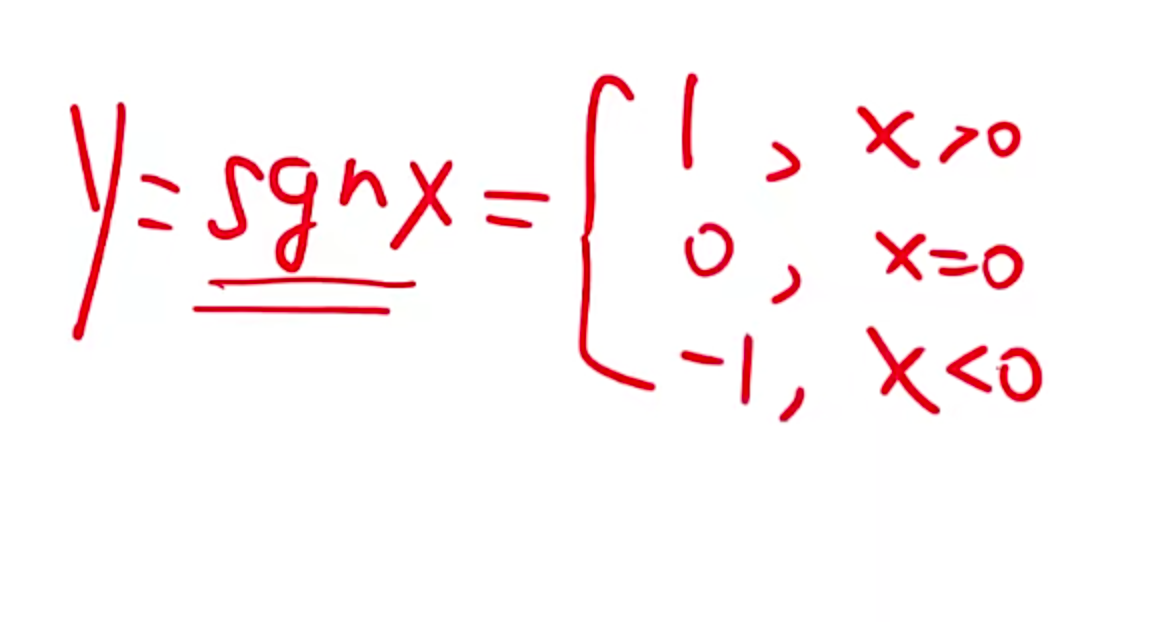 y = sgn x = { 1 , x > 0
0 , x = 0
-1 , x < 0